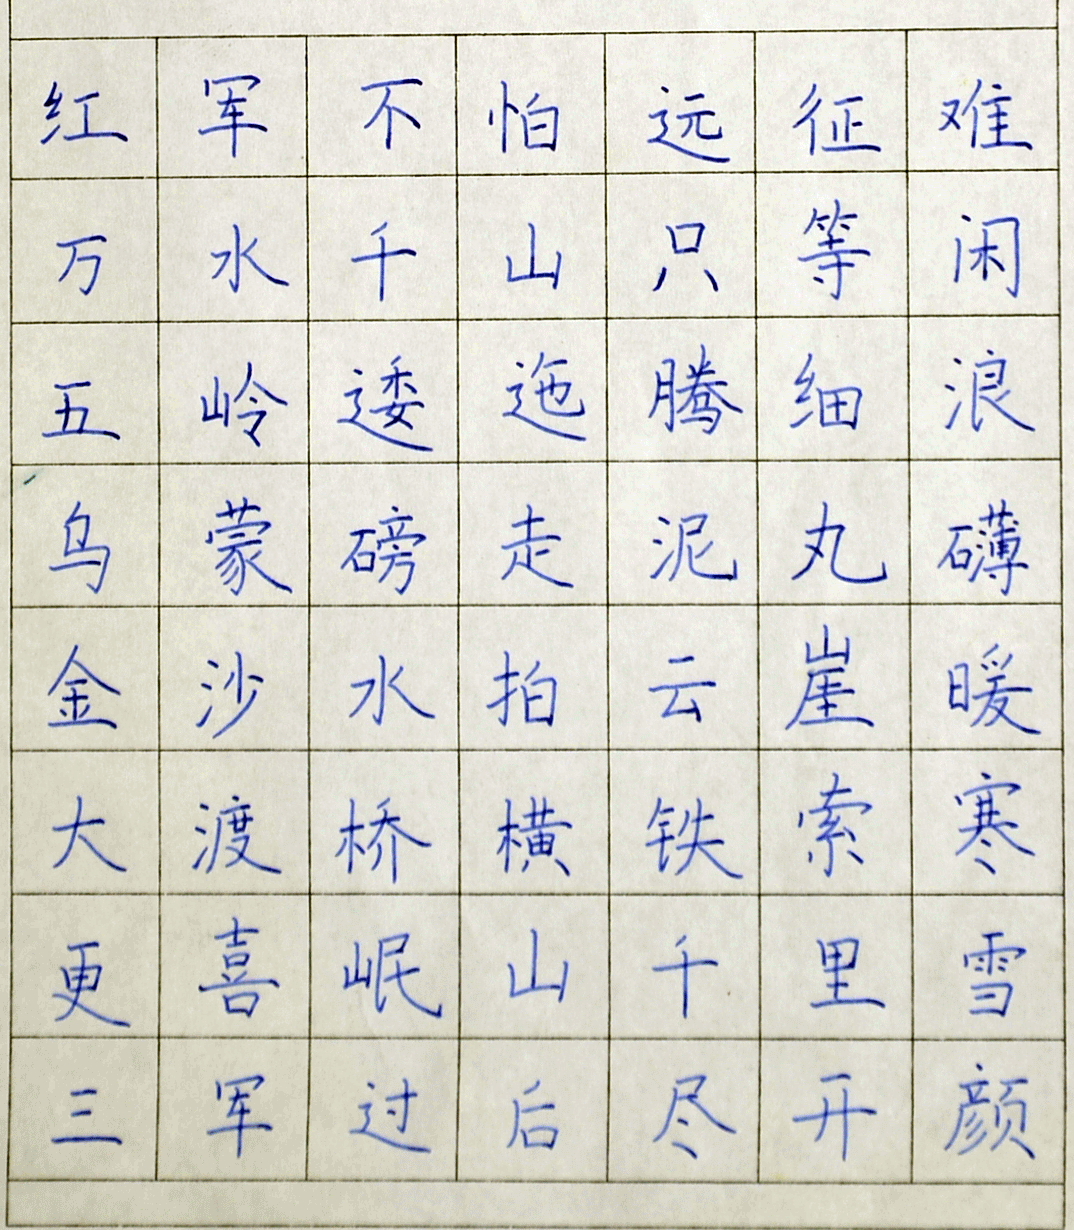 红军不怕远征难
万水千山只等闲
五岭逶迤腾细浪
乌蒙磅走泥丸礴
金沙水拍云崖暖
大渡桥横铁索寒
更喜岷山千里雪
三军过后尽开颜